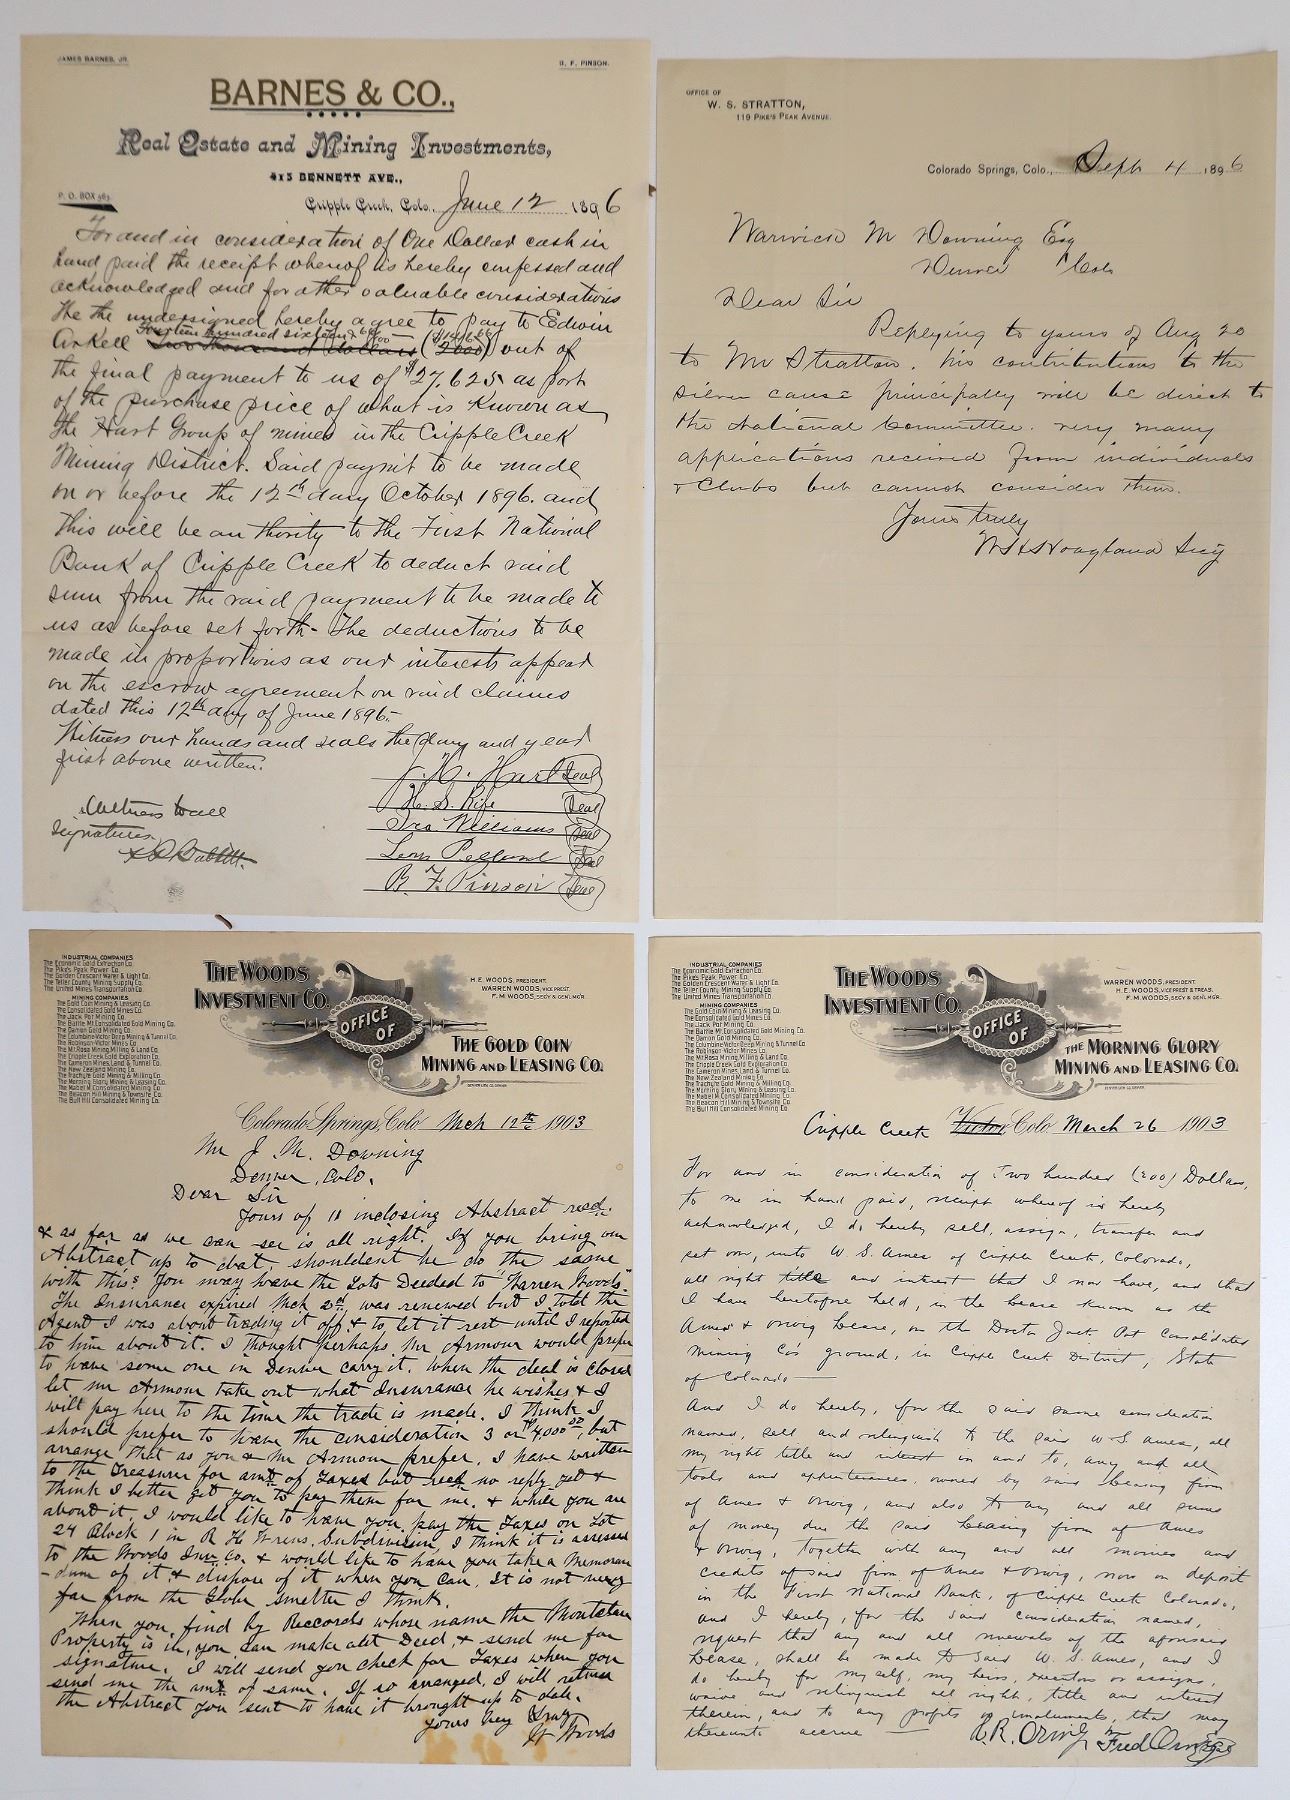 JAMES BARNES, JR.
B. F. PINSON.
BARNES & CO.,
Real Estate and Mining Investments,
415 BENNETT AVE.,
P. O. BOX
Cripple Creek, Colo., June 12 1896
For and in consideration of One Dollar cash in
hand paid the receipt whereof is hereby confessed and
acknowledged and for other valuable considerations
the the undersigned hereby agree to pay to Edwin
Fourteen hundred sixteen & 66/100 $1416.66
Arkell Two thousand dollars (2000) out of
the final payment to us of $27,625 as part
of the purchase price of what is known as
the Hart Group of mines in the Cripple Creek
Mining District. Said paymt to be made
on or before the 12th day October 1896. and
this will be authority to the First National
Bank of Cripple Creek to deduct said
sum from the said payment to be made to
us as before set forth - The deductions to be
made in proportions as our interests appear
on the escrow agreement on said claims
dated this 12th day of June 1896-
Witness our hands and seals the day and year
first above written.
J. H. Hart Seal
H. S. Rife Seal
Ira Williams Seal
Leon Seal
B. F. Pinson Seal
Witness to all
signatures.
OFFICE OF
W. S. STRATTON,
119 PIKE'S PEAK AVENUE.
Colorado Springs, Colo., Sept 4 1896
Warwick M Downing Esq
Denver Colo
Dear Sir
Replying to yours of Aug 20
to Mr Stratton. his contributions to the
silver cause principally will be direct to
the National Committee. very many
applications received from individuals
& Clubs but cannot consider them.
Yours truly
Hoagland Secy
INDUSTRIAL COMPANIES
The Economic Gold Extraction Co.
The Pike's Peak Power Co.
The Golden Crescent Water & Light Co.
The Teller County Mining Supply Co.
The United Mines Transportation Co.
MINING COMPANIES
The Gold Coin Mining & Leasing Co.
The Consolidated Gold Mines Co.
The Jack Pot Mining Co.
The Battle Mt. Consolidated Gold Mining Co.
The Damon Gold Mining Co.
The Columbine-Victor Deep Mining & Tunnel Co.
The Robinson-Victor Mines Co.
The Mt. Rosa Mining, Milling & Land Co.
The Cripple Creek Gold Exploration Co.
The Cameron Mines, Land & Tunnel Co.
The New Zealand Mining Co.
The Trachyte Gold Mining & Milling Co.
The Morning Glory Mining & Leasing Co.
The Mabel M. Consolidated Mining Co.
The Beacon Hill Mining & Townsite Co.
The Bull Hill Consolidated Mining Co.
THE WOODS
INVESTMENT CO.
OFFICE
OF
H. E. WOODS, PRESIDENT.
WARREN WOODS, VICE PREST
F. M. WOODS, SECY & GENL MGR.
THE GOLD COIN
MINING AND LEASING CO.
Colorado Springs, Colo Mch 12th 1903
Mr J. M. Downing
Denver, Colo.
Dear Sir
Yours of 11 inclosing Abstract recd.
& as far as we can see is all right. If you bring our
Abstract up to date, shouldent he do the same
with this? You may have the Lots Deeded to "Warren Woods."
The Insurance expired Mch 2nd, was renewed but I told the
Agent I was about trading it off & to let it rest until I reported
to him about it. I thought perhaps, Mr Armour would prefer
to have some one in Denver carry it. When the deal is closed
let Mr Armour take out what Insurance he wishes & I
will pay here to the time the trade is made. I think I
should prefer to have the consideration 3 or $4,000.00, but
arrange that as you & Mr Armour prefer. I have written
to the Treasurer for amt of Taxes but recd no reply yet &
think I better get you to pay them for me. & while you are
about it, I would like to have you pay the Taxes on Lot
24 Block 1 in R. H. Subdivision, I think it is assessed
to the Woods Inv Co. & would like to have you take a Memoran
-dum of it & dispose of it when you can. It is not very
far from the Globe Smelter I think.
When you find by Reccords whose name the
Property is in, you can make out Deed, & send me for
signature. I will send you check for Taxes when you
send me the amt of same. If so arranged, I will return
the Abstract you sent to have it brought up to date.
Yours very truly
Woods
INDUSTRIAL COMPANIES
The Economic Gold Extraction Co.
The Pike's Peak Power Co.
The Golden Crescent Water & Light Co.
The Teller County Mining Supply Co.
The United Mines Transportation Co.
MINING COMPANIES
The Gold Coin Mining & Leasing Co.
The Consolidated Gold Mines Co.
The Jack Pot Mining Co.
The Battle Mt. Consolidated Gold Mining Co.
The Damon Gold Mining Co.
The Columbine-Victor Deep Mining & Tunnel Co.
The Robinson-Victor Mines Co.
The Mt. Rosa Mining, Milling & Land Co.
The Cripple Creek Gold Exploration Co.
The Cameron Mines, Land & Tunnel Co.
The New Zealand Mining Co.
The Trachyte Gold Mining & Milling Co.
The Morning Glory Mining & Leasing Co.
The Mabel M. Consolidated Mining Co.
The Beacon Hill Mining & Townsite Co.
The Bull Hill Consolidated Mining Co.
THE WOODS
INVESTMENT CO.
OFFICE
OF
WARREN WOODS, PRESIDENT.
H. E. WOODS, VICE PREST & TREAS.
F. M. WOODS, SECY & GENL MGR.
THE MORNING GLORY
MINING AND LEASING CO.
Cripple Creek Victor, Colo March 26 1903
For and in consideration of Two hundred (200) Dollars,
to me in hand paid, receipt whereof is hereby
acknowledged, I do hereby sell, assign, transfer and
set over, unto W. S. Ames, of Cripple Creek, Colorado,
all right title and interest that I now have, and that
I have heretofore held, in the lease known as the
Ames & Orwig Lease, on the Doctor Jack Pot Consolidated
Mining Co's ground, in Cripple Creek District, State
of Colorado —
And I do hereby, for the said same consideration
named, sell and relinquish to the said W. S. Ames, all
my right title and interest in and to, any and all
tools and appurtenances, owned by said leasing firm
of Ames & Orwig, and also to any and all sums
of money due the said leasing firm of Ames
& Orwig, together with any and all monies and
credits of said firm of Ames & Orwig, now on deposit
in the First National Bank, of Cripple Creek Colorado,
and I hereby, for the said consideration named,
request that any and all renewals of the aforesaid
lease, shall be made to said W. S. Ames, and I
do hereby for my self, my heirs, executors or assigns,
waive and relinquish all right, title and interest
therein, and to any profits or emoluments, that may
thereunto accrue —
R. Orwig
Fred Orwig